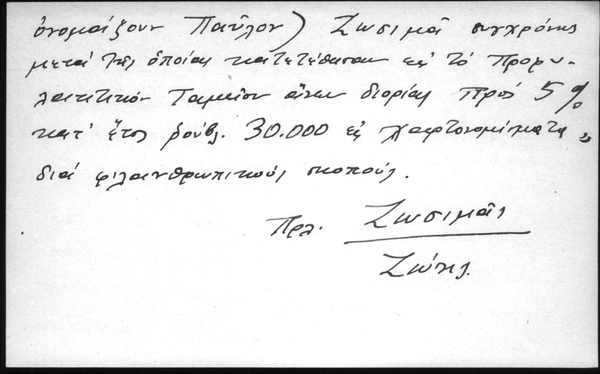 ὀνομάζουν Παῦλον) Ζωσιμᾶ συγχρόνως
μετά τῆς ὁποίας κατετέθησαν εἰς τό Προφυ-
λακτικόν Ταμεῖον ἄνευ διορίας πρός 5%
κατ' ἔτος ρούβλ. 30.000 εἰς χαρτονομίσματα,
διά φιλανθρωπικούς σκοπούς.
Πρλ. Ζωσιμᾶς
Ζώης.